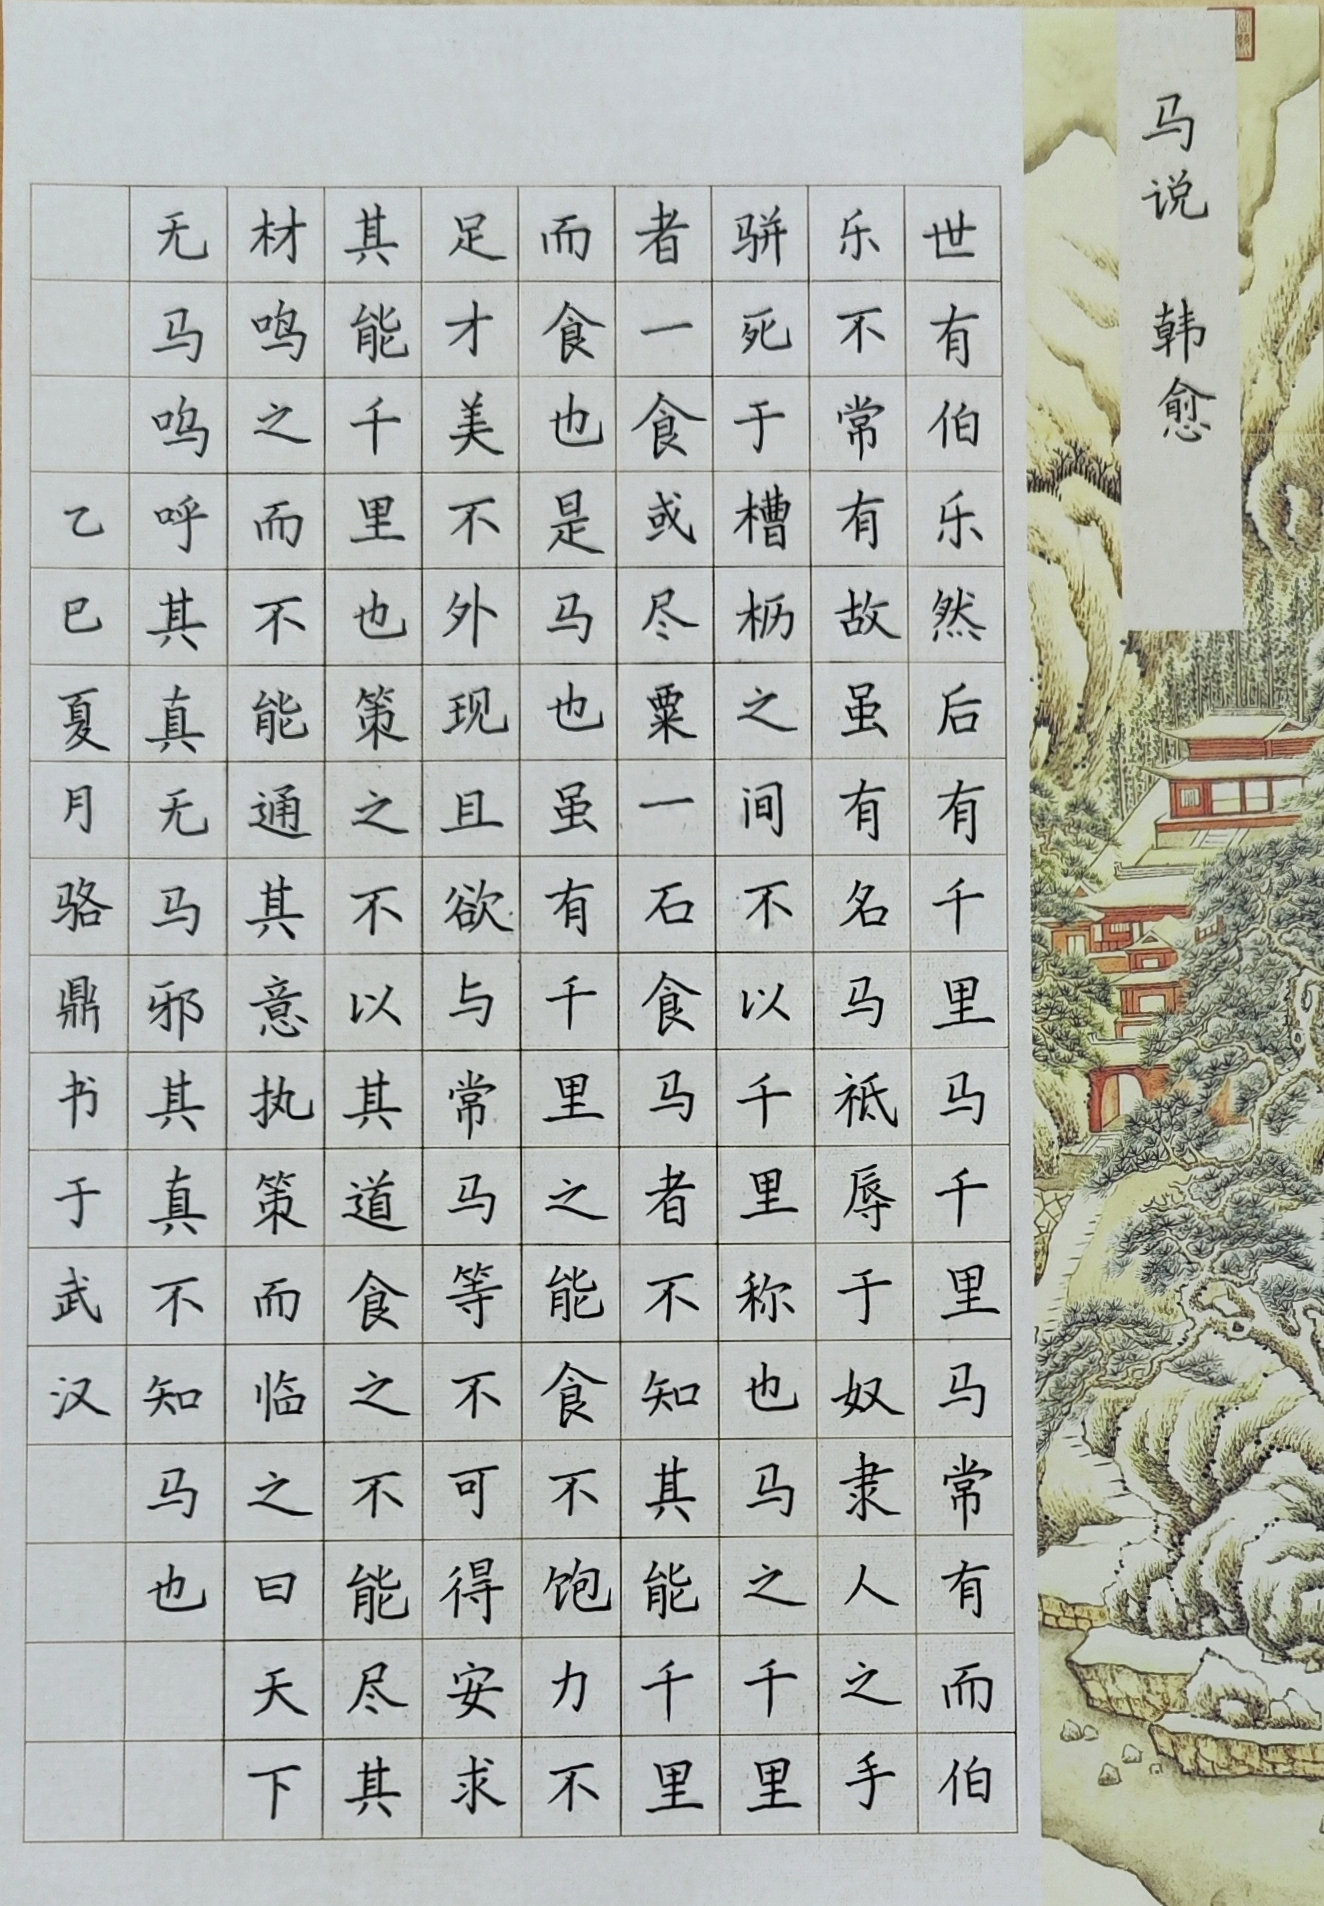 马说 韩愈
世有伯乐然后有千里马千里马常有而伯
乐不常有故虽有名马祗辱于奴隶人之手
骈死于槽枥之间不以千里称也马之千里
者一食或尽粟一石食马者不知其能千里
而食也是马也虽有千里之能食不饱力不
足才美不外现且欲与常马等不可得安求
其能千里也策之不以其道食之不能尽其
材鸣之而不能通其意执策而临之曰天下
无马呜呼其真无马邪其真不知马也
乙巳夏月骆鼎书于武汉